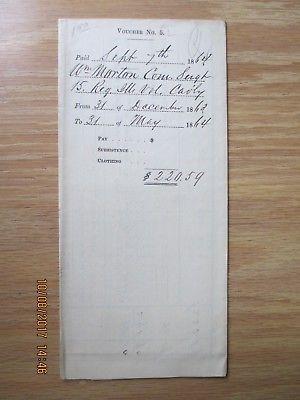 VOUCHER No. 5.
Paid Sept 7th 1864
Wm Morton Com. Sergt
15. Reg. Ills Vol. Cav'y
From 31 of December 1863
To 31 of May 1864
PAY $
SUBSISTENCE
CLOTHING
$220.59
10/08/2017 14:46